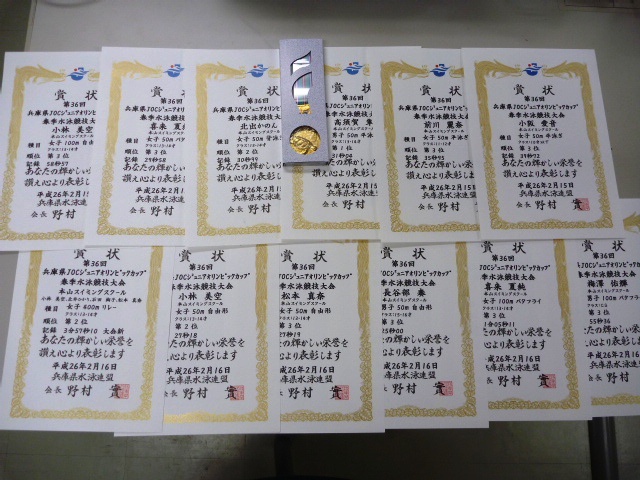 賞状
第36回
兵庫県JOCジュニアオリンピックカップ
春季水泳競技大会
小林 美空
本山スイミングスクール
種目 女子 100m 自由
順位 第3位
記録 58秒97
あなたの輝かしい
讃え心より表彰し
平成26年2月15
兵庫県水泳連
会長 野村
賞状
第36回
兵庫県JOCジュニアオリ
春季水泳競技
喜来 夏
本山スイミングス
種目 女子 50m バタ
順位 第3位
記録 29秒58
あなたの輝かし
讃え心より表彰
平成26年2月
兵庫県水泳
会長 野村
賞状
第36回
兵庫県JOCジュニアオリン
春季水泳競技大
北辻 かのん
本山スイミングスクー
種目 女子 50m 背泳
順位 第3位
記録 30秒97
あなたの輝か
讃え心より表
平成26年2月
兵庫県水
会長 野村
賞
第36回
ジュニアオリンピ
水泳競技大
高須賀
本山スイミングスクール
50m 平泳
第1位
31秒08
の輝かしい
より表彰
26年2月15
県水泳連
野村
賞状
第36回
兵庫県JOCジュニアオリンピック
春季水泳競技大会
前川 夏奈
本山スイミングスクール
種目 女子 50m 平泳ぎ
クラス:11~12才
順位 第3位
記録 35秒95
あなたの輝かしい
讃え心より表彰し
平成26年2月15
兵庫県水泳連
会長 野村
賞状
第36回
兵庫県JOCジュニアオリンピックカップ
春季水泳競技大会
本山スイミングスクール
種目 女子 50m 平泳ぎ
順位 第3位
記録 39秒92
あなたの輝かしい栄誉を
讃え心より表彰します
平成26年2月15日
兵庫県水泳連盟
会長 野村
賞状
第36回
兵庫県JOCジュニアオリンピックカップ
春季水泳競技大会
本山スイミングスクール
種目 女子 400m リレー
クラス:13~14才
順位 第2位
記録 3分57秒10 大会新
あなたの輝かしい栄誉を
讃え心より表彰します
平成26年2月16日
兵庫県水泳連盟
会長 野村
賞状
第36回
JOCジュニアオリンピックカップ
季水泳競技大会
小林 美空
本山スイミングスクール
女子 50m 自由形
クラス:13~14才
第2位
27秒19
たの輝かしい栄誉
心より表彰します
平成26年2月16日
兵庫県水泳連盟
野村
賞状
第36回
JOCジュニアオリンピックカップ
季水泳競技大会
松本 真奈
本山スイミングスクール
女子 50m 自由形
クラス:13~14才
第3位
27秒19
たの輝かしい栄誉を
心より表彰します
平成26年2月16日
兵庫県水泳連盟
野村
賞状
第36回
JOCジュニアオリンピックカップ
季水泳競技大会
長谷部 泰
本山スイミングスクール
男子 50m 自由形
第3位
25秒00
たの輝かしい栄誉
心より表彰します
平成26年2月16日
兵庫県水泳連盟
野村
賞状
第36回
JOCジュニアオリンピックカップ
季水泳競技大会
喜来 夏純
本山スイミングスクール
女子 100m バタフライ
クラス:13~14才
第3位
1分05秒11
たの輝かしい栄誉を
心より表彰します
平成26年2月16日
兵庫県水泳連盟
野村
賞状
第36回
ジュニアオリンピックカップ
水泳競技大会
梅澤 佑輝
本山スイミングスクール
男子 100m バタフライ
第3位
55秒36
の輝かしい栄誉を
より表彰します
26年2月16日
兵庫県水泳連盟
野村